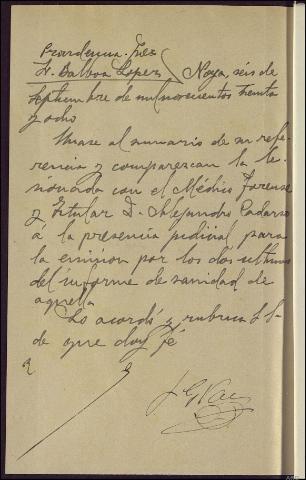 Providencia Juez
Sr. Balboa Lopez Noya, seis de
Septiembre de mil novecientos treinta
y ocho
Unase al sumario de su refe-
rencia y comparezcan la le-
sionada con el Médico forense
y titular D. Alejandro Cadarso
á la presencia judicial para
la emision por los dos ultimos
del informe de sanidad de
aquella
Lo acordó y rubrica S.S.
de que doy fé